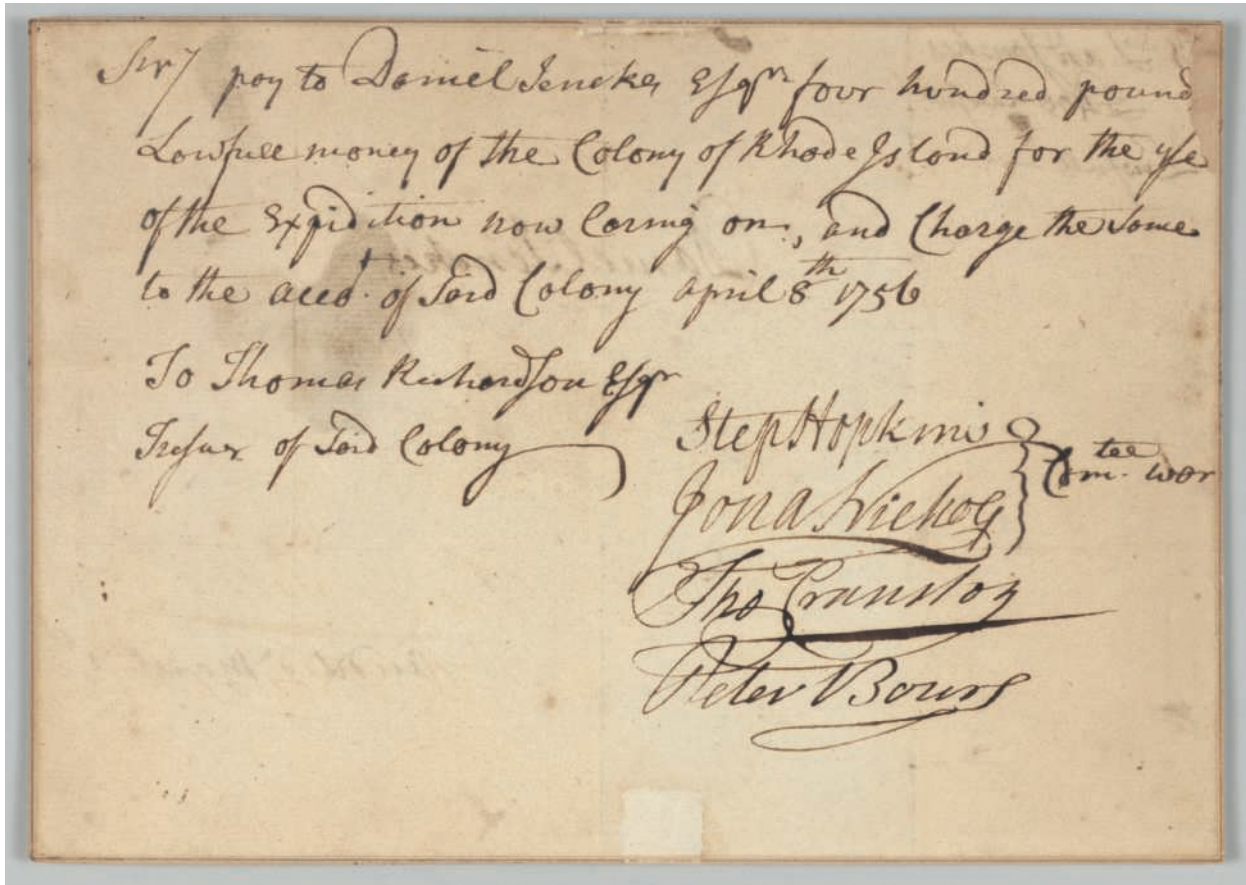 Sir/ pay to Daniel Jenckes Esqr. four hundred pound
Lawfull money of the Colony of Rhode Island for the use
of the Expidition now Caring on, and Charge the Same
to the accot. of Said Colony april 8th 1756
To Thomas Richardson Esqr
Tresuer of Said Colony
Step Hopkins
Jona Nichols
Comtee war
Tho Cranston
Peter Bours